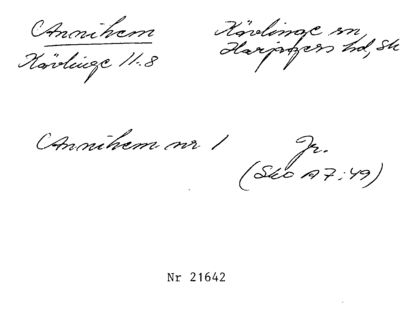 Annihem
Kävlinge 11:8
Kävlinge sn,
Harjagers hd, Sk
Annihem nr 1
Jr.
(Sko A7:49)
Nr 21642